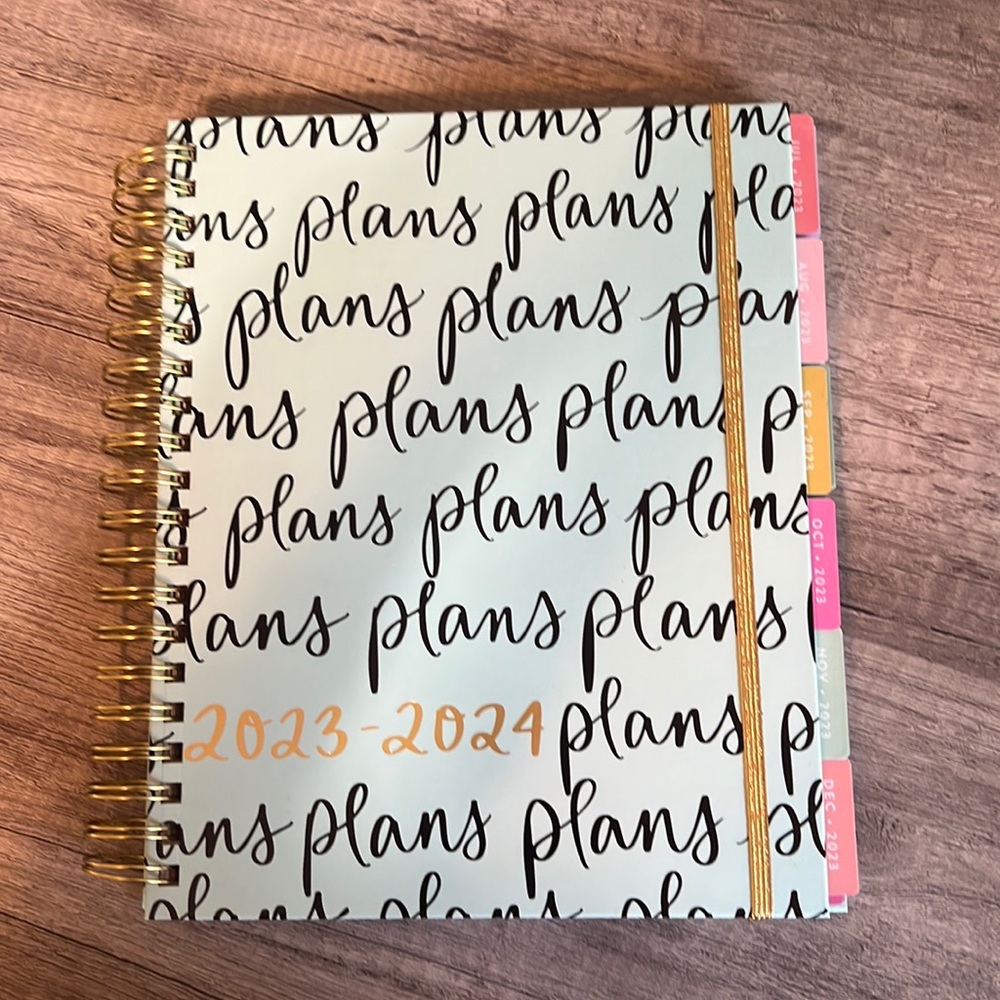 plans plans plans
ans plans plans pla
s plans plans plan
ans plans plans p
s plans plans plans
plans plans plans
2023-2024 plans p
ans plans plans pl
plans plans plans
JUL • 2023
AUG • 2023
SEP • 2023
OCT • 2023
NOV • 2023
DEC • 2023